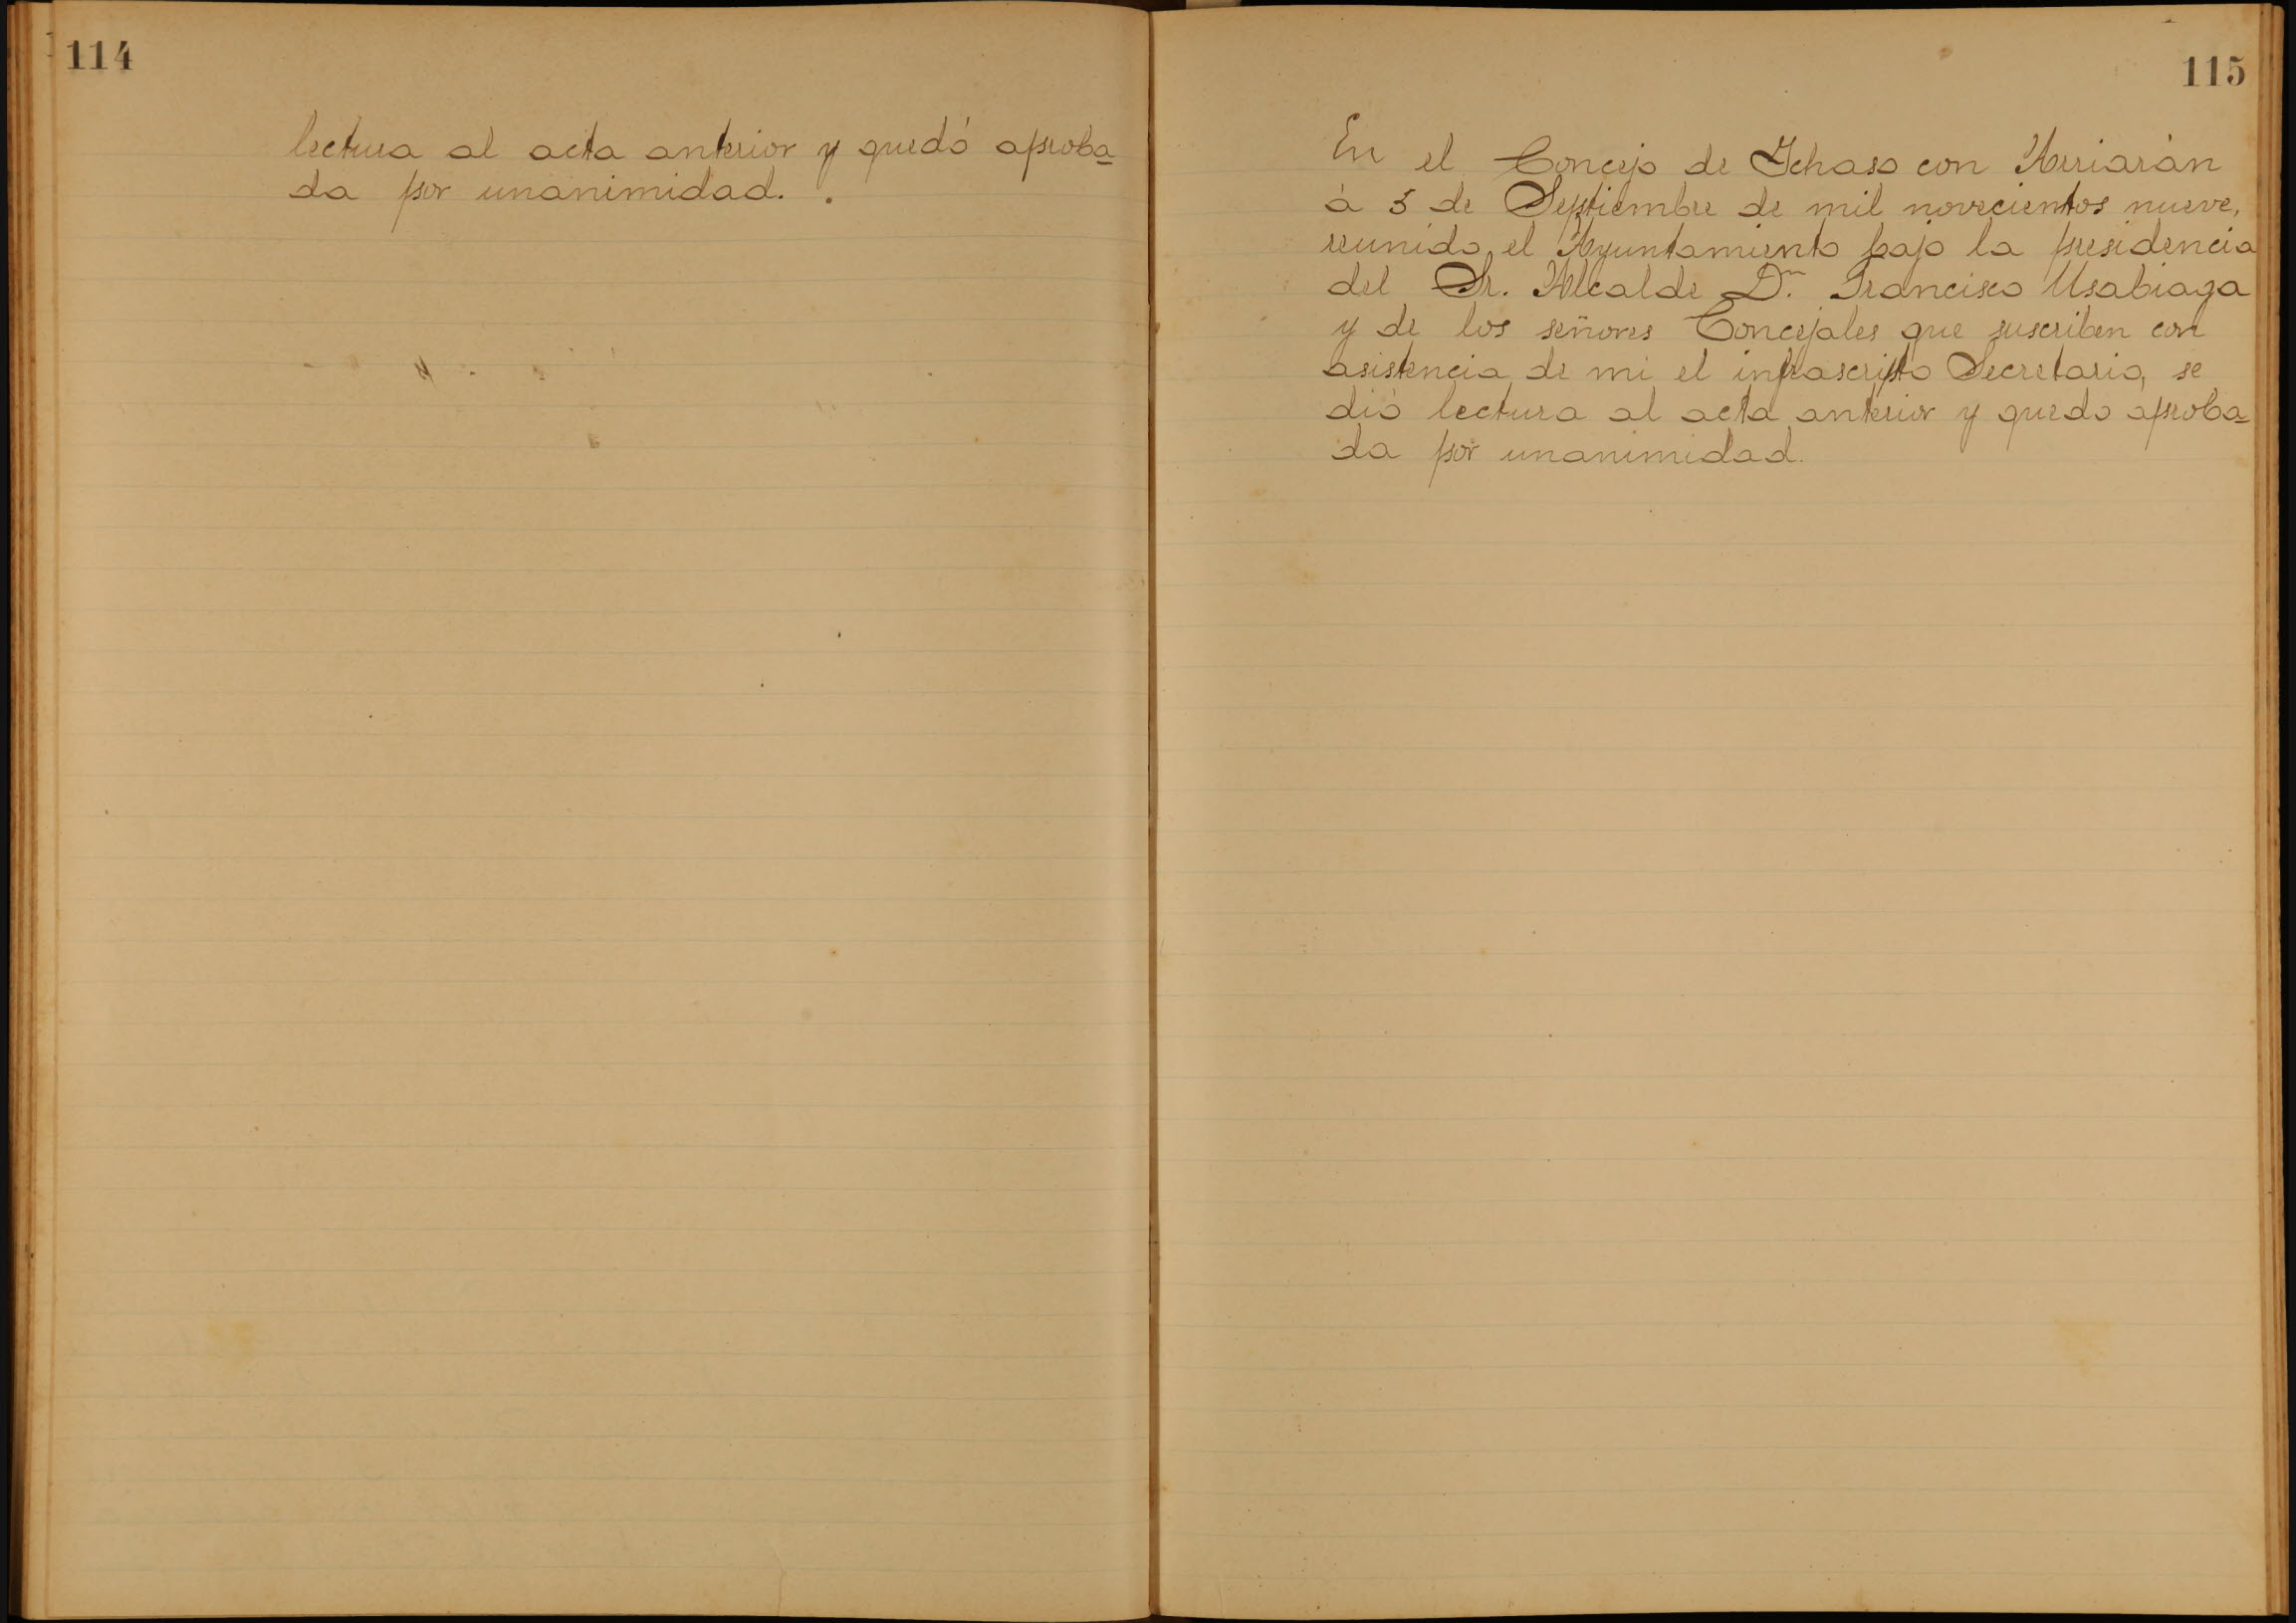 114
lectura al acta anterior y quedó aproba-
da por unanimidad.
115
En el Concejo de Ichaso con Arriarán
á 5 de Septiembre de mil novecientos nueve,
reunido el Ayuntamiento bajo la presidencia
del Sr. Alcalde Dn. Francisco Usabiaga
y de los señores Concejales que suscriben con
asistencia de mi el infrascripto Secretario, se
dió lectura al acta anterior y quedo aproba-
da por unanimidad.